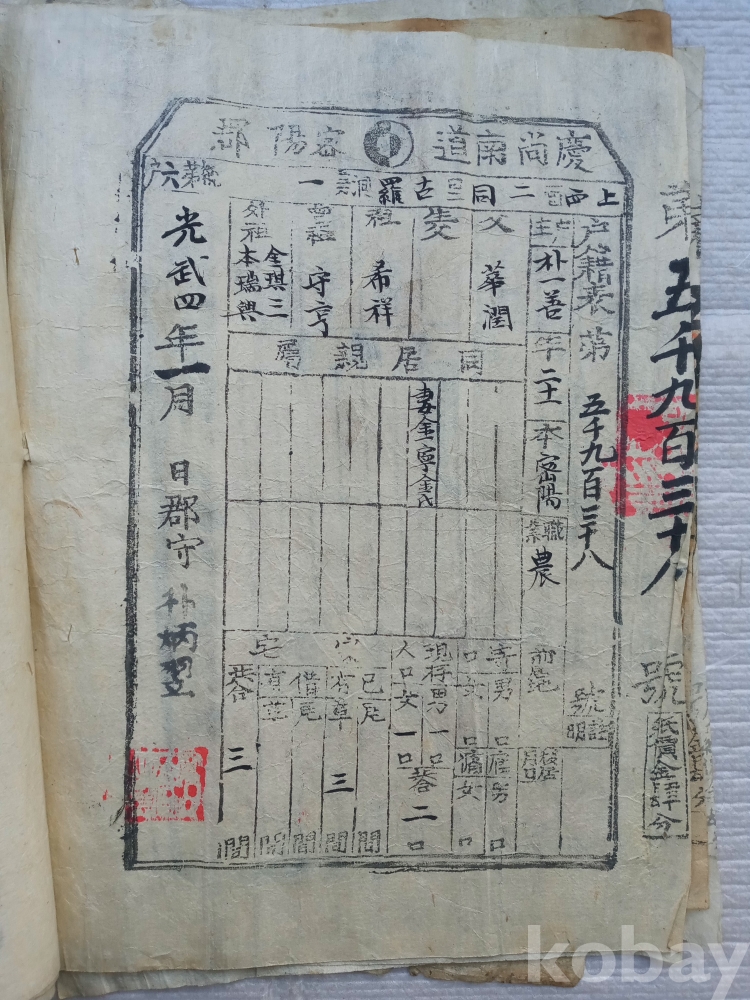 慶尚南道 密陽郡
上西面二同里古羅洞 一
統第六戶
戶籍表 第 五千九百三十八 號
戶主 朴一善 年 二十一 本 密陽 職業 農
前居地
移居 月 日
父 華潤
生父
祖 希祥
曾祖 守亨
外祖 金琪三 本瑞興
同居親屬
妻金寧金氏
寄口 男 口 女 口
雇傭 男 口 女 口
現存人口 男 一口 女 一口 共合 二 口
家宅
己有 瓦 間 草 三 間
借有 瓦 間 草 間
共合 三 間
光武四年一月 日郡守 朴炳翌
第五千九百三十八號
紙價金肆分
kobay